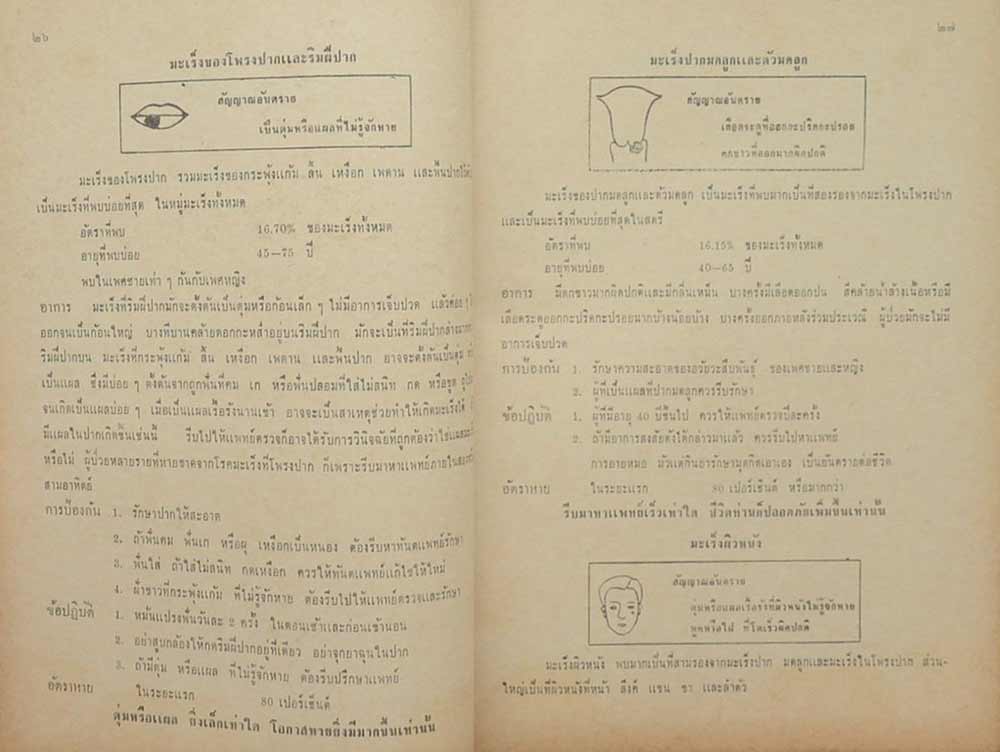 ๒๖
มะเร็งของโพรงปากและริมฝีปาก
สัญญาณอันตราย
เป็นตุ่มหรือแผลที่ไม่รู้จักหาย
มะเร็งของโพรงปาก รวมมะเร็งของกระพุ้งแก้ม ลิ้น เหงือก เพดาน และพื้นปากไว้ด้วย
เป็นมะเร็งที่พบบ่อยที่สุด ในหมู่มะเร็งทั้งหมด
อัตราที่พบ 16.70% ของมะเร็งทั้งหมด
อายุที่พบบ่อย 45—75 ปี
พบในเพศชายเท่า ๆ กันกับเพศหญิง
อาการ มะเร็งที่ริมฝีปากมักจะตั้งต้นเป็นตุ่มหรือก้อนเล็ก ๆ ไม่มีอาการเจ็บปวด แล้วค่อย ๆ
ออกจนเป็นก้อนใหญ่ บางทีบานคล้ายดอกกะหล่ำอยู่บนริมฝีปาก มักจะเป็นที่ริมฝีปากล่างมากกว่า
ริมฝีปากบน มะเร็งที่กระพุ้งแก้ม ลิ้น เหงือก เพดาน และพื้นปาก อาจจะตั้งต้นเป็นตุ่ม
เป็นแผล ซึ่งมีบ่อย ๆ ตั้งต้นจากถูกฟันที่คม เก หรือฟันปลอมที่ใส่ไม่สนิท กด หรือขูด
จนเกิดเป็นแผลบ่อย ๆ เมื่อเป็นแผลเรื้อรังนานเข้า อาจจะเป็นสาเหตุช่วยทำให้เกิดมะเร็งได้
มีแผลในปากเกิดขึ้นเช่นนี้ รีบไปให้แพทย์ตรวจก็อาจได้รับการวินิจฉัยที่ถูกต้องว่าใช่แผลมะเร็ง
หรือไม่ ผู้ป่วยหลายรายที่หายขาดจากโรคมะเร็งที่โพรงปาก ก็เพราะรีบมาหาแพทย์ภายในสอง
สามอาทิตย์
การป้องกัน 1. รักษาปากให้สะอาด
2. ถ้าฟันคม ฟันเก หรือผุ เหงือกเป็นหนอง ต้องรีบหาทันตแพทย์รักษา
3. ฟันใส่ ถ้าใส่ไม่สนิท กดเหงือก ควรให้ทันตแพทย์แก้ไขให้ใหม่
4. ฝ้าขาวที่กระพุ้งแก้ม ที่ไม่รู้จักหาย ต้องรีบไปให้แพทย์ตรวจและรักษา
ข้อปฏิบัติ 1. หมั่นแปรงฟันวันละ 2 ครั้ง ในตอนเช้าและก่อนเข้านอน
2. อย่าสูบกล้องให้กดริมฝีปากอยู่ที่เดียว อย่าจุกยาฉุนในปาก
3. ถ้ามีตุ่ม หรือแผล ที่ไม่รู้จักหาย ต้องรีบปรึกษาแพทย์
อัตราหาย ในระยะแรก 80 เปอร์เซ็นต์
ตุ่มหรือแผล ยิ่งเล็กเท่าใด โอกาสหายยิ่งมีมากขึ้นเท่านั้น
๒๗
มะเร็งปากมดลูกและตัวมดลูก
สัญญาณอันตราย
เลือดระดูที่ออกกะปริดกะปรอย
ตกขาวที่ออกมากผิดปกติ
มะเร็งของปากมดลูกและตัวมดลูก เป็นมะเร็งที่พบมากเป็นที่สองรองจากมะเร็งในโพรงปาก
และเป็นมะเร็งที่พบบ่อยที่สุดในสตรี
อัตราที่พบ 16.15% ของมะเร็งทั้งหมด
อายุที่พบบ่อย 40—65 ปี
อาการ มีตกขาวมากผิดปกติและมีกลิ่นเหม็น บางครั้งมีเลือดออกปน สีคล้ายน้ำล้างเนื้อหรือมี
เลือดระดูออกกะปริดกะปรอยมากบ้างน้อยบ้าง บางครั้งออกภายหลังร่วมประเวณี ผู้ป่วยมักจะไม่มี
อาการเจ็บปวด
การป้องกัน 1. รักษาความสะอาดของอวัยวะสืบพันธุ์ ของเพศชายและหญิง
2. ผู้ที่เป็นแผลที่ปากมดลูกควรรีบรักษา
ข้อปฏิบัติ 1. ผู้ที่มีอายุ 40 ปีขึ้นไป ควรให้แพทย์ตรวจปีละครั้ง
2. ถ้ามีอาการสงสัยดังได้กล่าวมาแล้ว ควรรีบไปหาแพทย์
การอายหมอ มัวแต่กินยารักษามุตกิดเอาเอง เป็นอันตรายต่อชีวิต
อัตราหาย ในระยะแรก 80 เปอร์เซ็นต์ หรือมากกว่า
รีบมาหาแพทย์เร็วเท่าใด ชีวิตท่านก็ปลอดภัยเพิ่มขึ้นเท่านั้น
มะเร็งผิวหนัง
สัญญาณอันตราย
ตุ่มหรือแผลเรื้อรังที่ผิวหนังไม่รู้จักหาย
หูดหรือไฝ ที่โตเร็วผิดปกติ
มะเร็งผิวหนัง พบมากเป็นที่สามรองจากมะเร็งปาก มดลูกและมะเร็งในโพรงปาก ส่วน-
ใหญ่เป็นที่ผิวหนังที่หน้า ลึงค์ แขน ขา และลำตัว